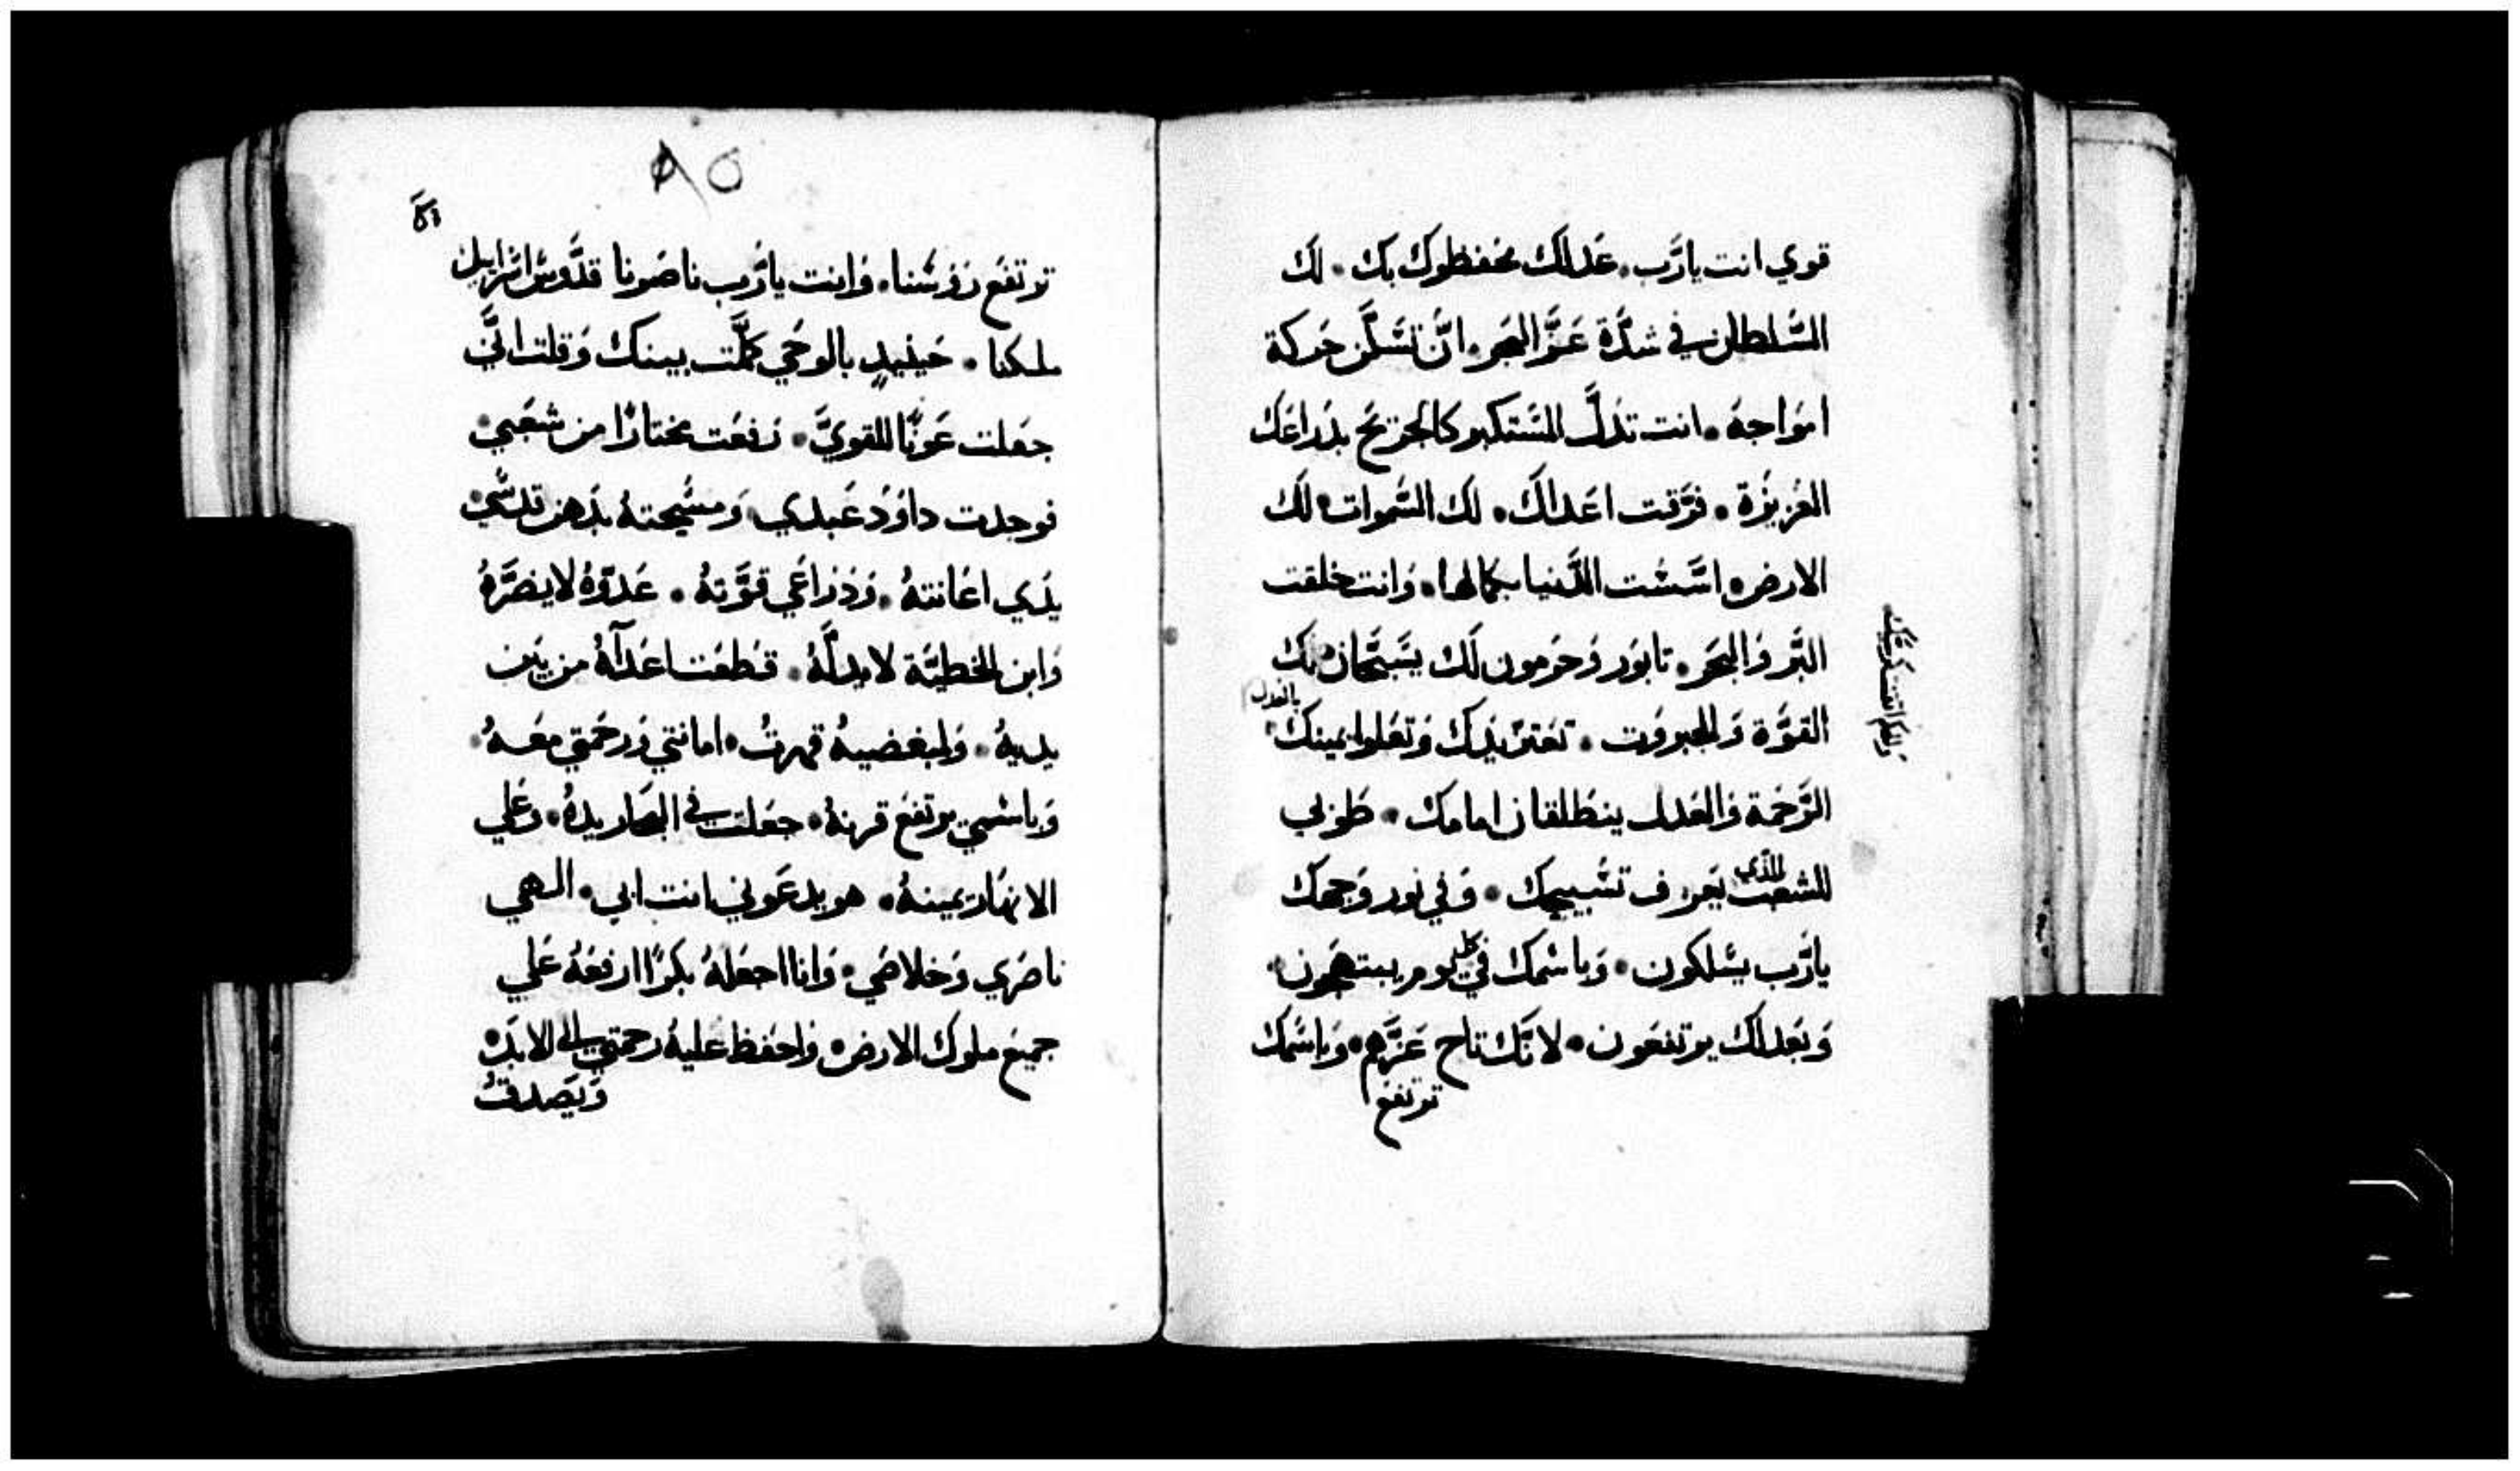 قوي انت يارَّب. عَدلك يحفظوك بك. لك
السَّلطان في شدَّة عَزَّ البحر. انَّ تسَكَّن حَركة
امَواجهُ. انت تذلَّ المستكبر كالجريح بذراعَك
العَزيزة. فرَّقت اعَداك. لك السَّموات لَك
الارض. اسَّست الدَّنيا بكمالها. وَانت خلقت
البَّر وَالبحَر. تابور وَحَرمون لَك يسَبَّحان. لك
القوَّة وَالجبروَت. تعَتز يَدك وَتعَلوا يمينك
بالعدل
الرَّحمَة وَالعَدل ينطَلقان امامك. طَوبي
للشعَب الذي يَعرف تسَبيحك. وَفي نور وَجهك
يارَّب يسَلكون. وَباسَمك في كل يوم يبتهجون.
وَبعَدلك يرتفعَون. لانَّك تاج عَزَّهم. وَباسَمك
ترتفعَ
٨٥
ترتفعَ رَؤسَنا. وَانت يارَّب ناصَرنا قدَّوس اسَراييل
ملكنا. حَينيدٍ بالوحَي كلَّمت بينك وَقلت انَّي
جعَلت عَونًا للقويَّ. رَفعَت مختارًا من شعَبي
فوجدت داوَد عَبدي. وَمسَحته بدَهن قدسَّي
يَدي اعَانتهُ. وَذراعَي قوَّتهُ. عَدوَّهُ لا يضرَّهُ
وَابن الخطيَّة لا يدلَّهُ. قطَعَت اعَدآهُ من بَين
يديهُ. وَلمبغضيهُ قهرتُ. امانتي وَرحَمتي معَهُ.
وَباسَمي يرتفعَ قرنهُ. جعَلت في البحَار يدهُ. وَعَلي
الانهَار يمينهُ. هو يدعَوني انت ابي. الهي
ناصَري وَخلاصَي. وَانا اجعَلهُ بكرًا ارفعَهُ عَلي
جميعَ ملوك الارض. وَاحَفظ عَليهُ رحمتي الي الابدَ.
وَيصَدقُ